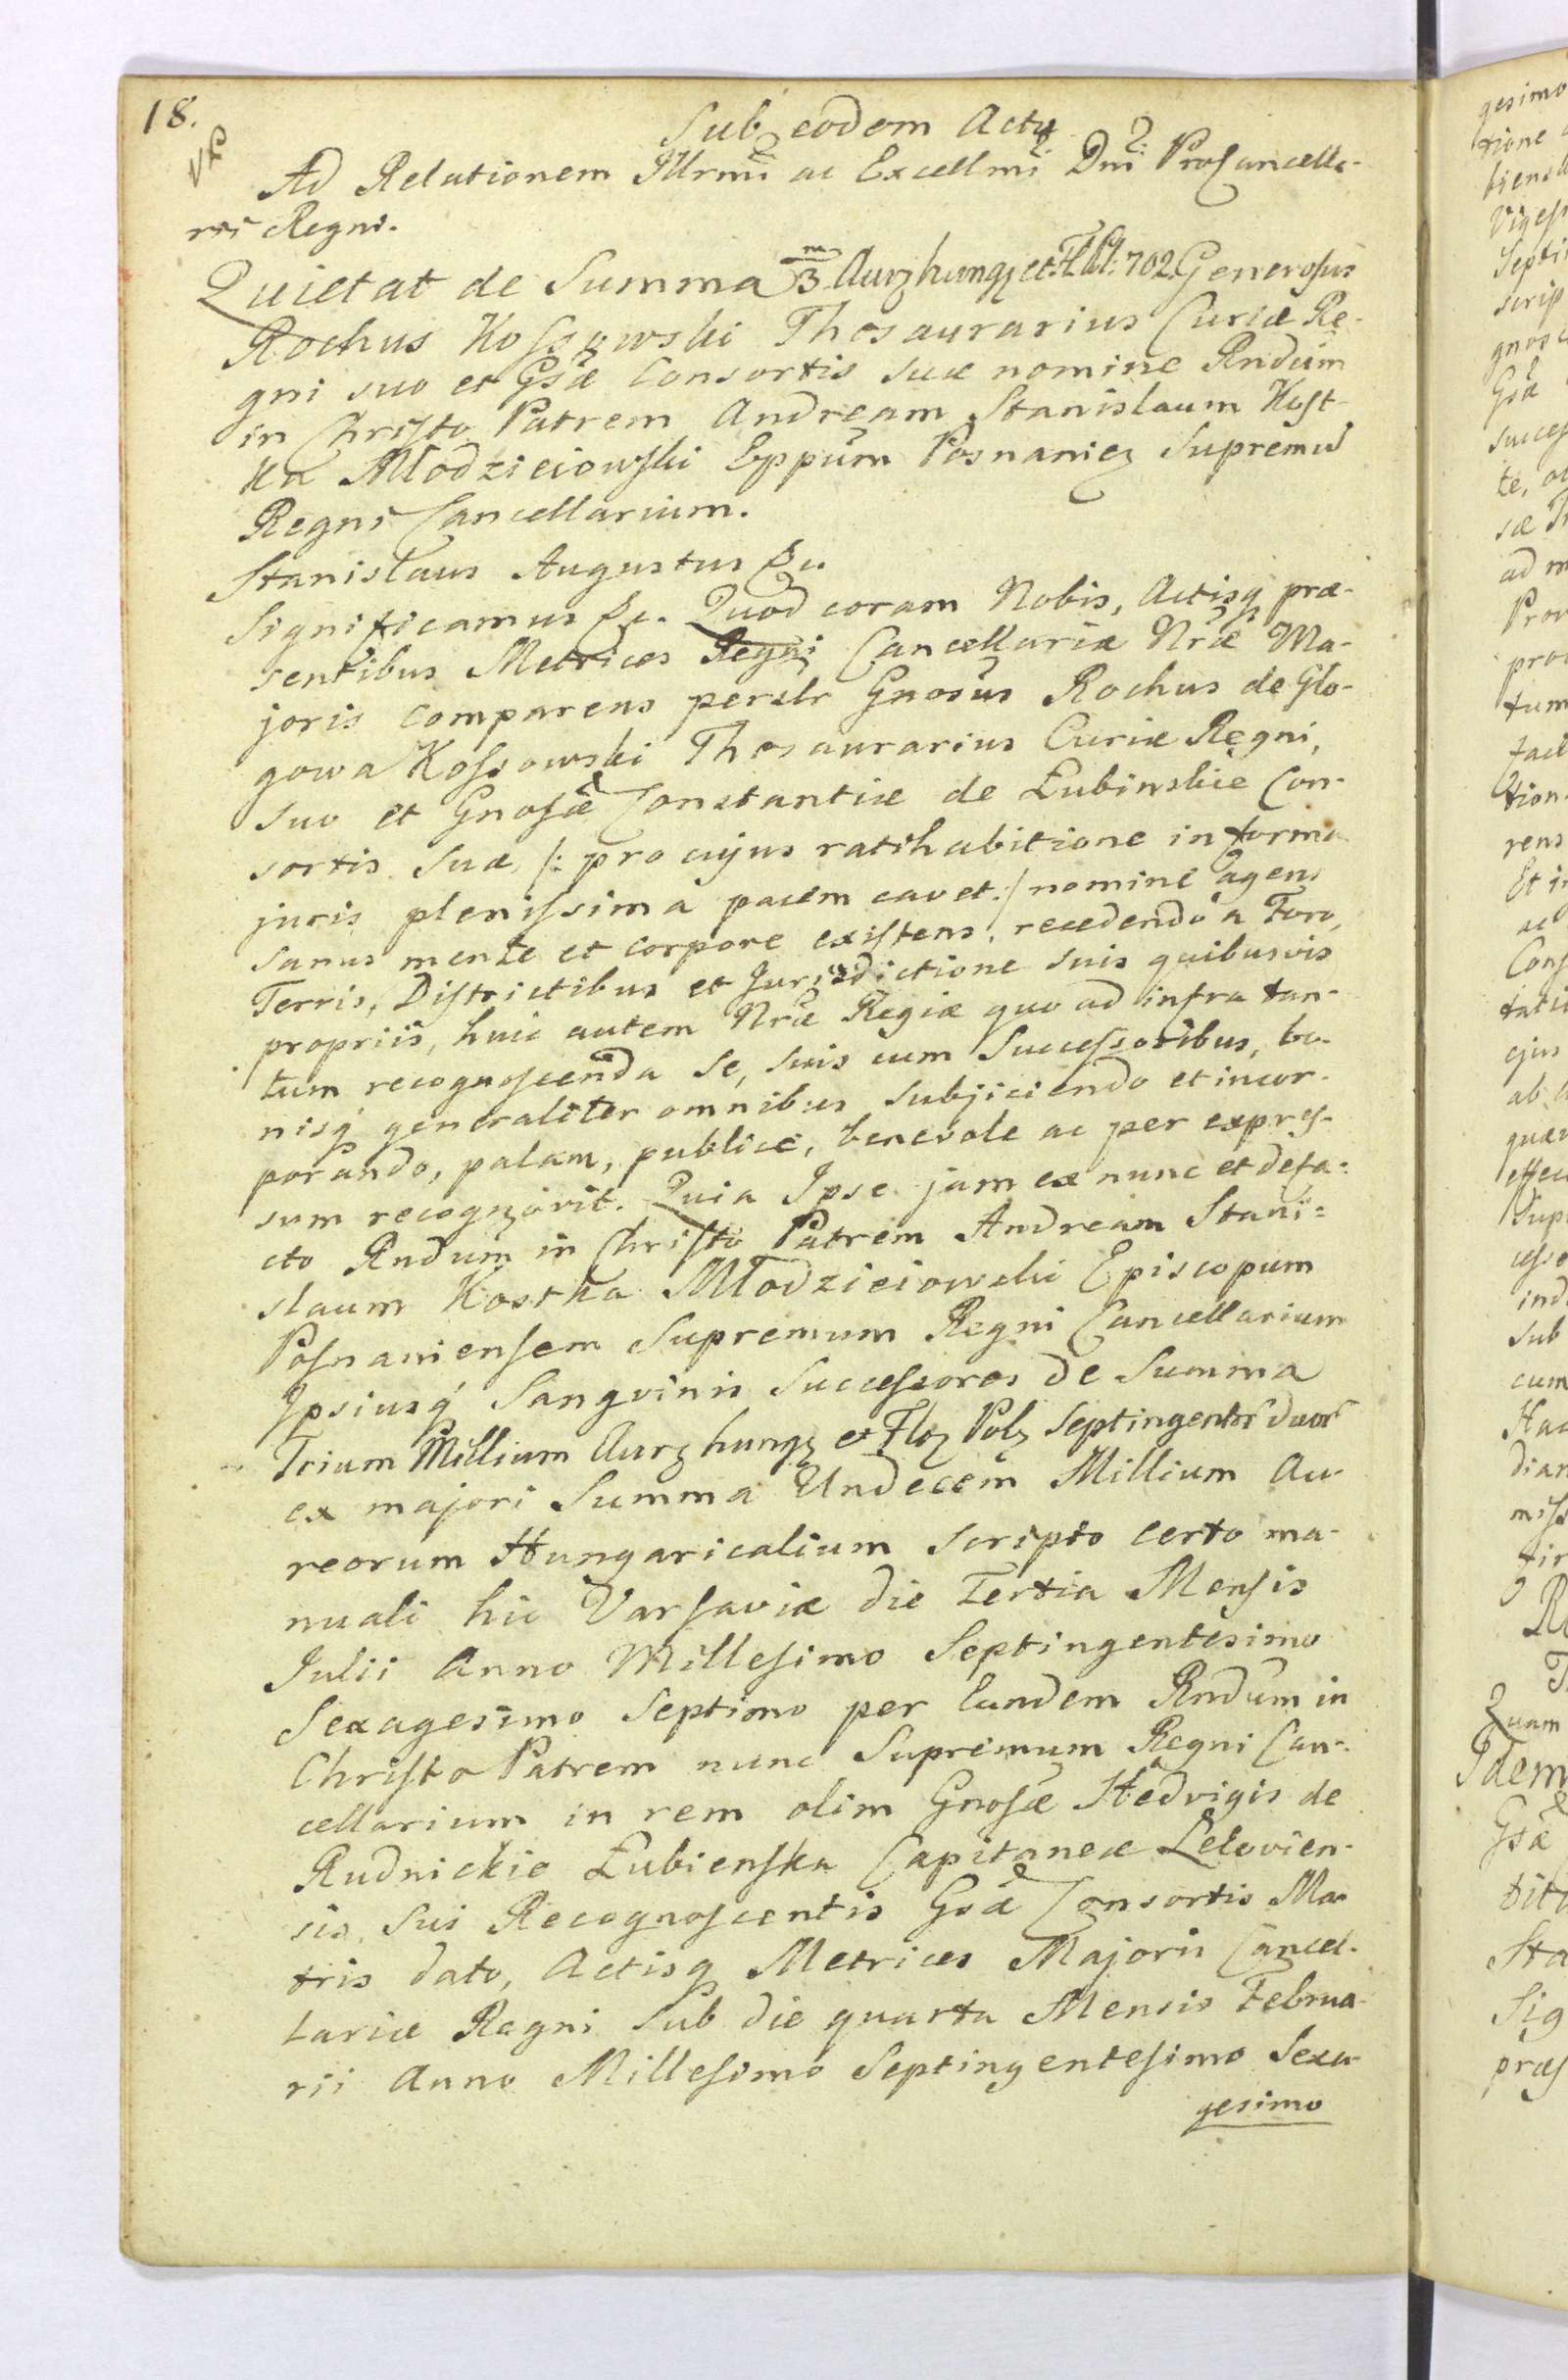 18.
Sub eodem Actu
Ad Relationem Illrmi ac Excellmi Dni ProCancella-
rii Regni.
Quietat de Summa 3 m Aurz hungz et Fl. Pl: 702. Generosus
Rochus Kossowski Thesaurarius Curiæ Re-
gni suo et Gsæ Consortis suæ nomine Rndum
in Christo Patrem Andream Stanislaum Kost-
ka Młodzieiowski Eppum Posnaniez Supremu
Regni Cancellarium.
Stanislaus Augustus &c.
Significamus &c. Quod coram Nobis, Actisq præ-
sentibus Metrices Regni Cancellariæ Nræ Ma-
joris comparens perslr Gnosus Rochus de Glo-
gowa Kossowski Thesaurarius Curiæ Regni,
suo et Gnosæ Constantiæ de Łubinskie Con-
sortis suæ /: pro cujus ratihabitione in forma
juris plenissima pacem cavet :/ nomine agens
sanus mente et corpore existens, recedendo a Foro,
Terris, Districtibus et Jurisdictione suis quibusvis
propriis, huic autem Nræ Regiæ quo ad infra tan-
tum recognoscenda se, suis cum Successoribus, bo-
nisq generaliter omnibus subjiciendo et incor-
porando, palam, publice, benevole ac per expres-
sum recognovit. Quia Ipse jam ex nunc et defa-
cto Rndum in Christo Patrem Andream Stani=
slaum Kostka Młodzieiowski Episcopum
Posnaniensem Supremum Regni Cancellarium
Ipsiusq Sangvinis Successores de Summa
Trium Millium Aurz hungz et Floz Polz Septingentor duor
ex majori Summa Undecem Millium Au-
reorum Hungaricalium scripto certo ma-
nuali hic Varsaviæ die Tertia Mensis
Julii Anno Millesimo Septingentesimo
Sexagesimo Septimo per Eundem Rndum in
Christo Patrem nunc Supremum Regni Can-
cellarium in rem olim Gnosæ Hedvigis de
Rudnickie Łubienska Capitaneæ Lelovien-
sis, sui Recognoscentis Gsæ Consortis Ma-
tris dato, Actisq Metrices Majoris Cancel-
lariæ Regni sub die quarta Mensis Februa-
rii Anno Millesimo Septingentesimo Sexa-
gesimo